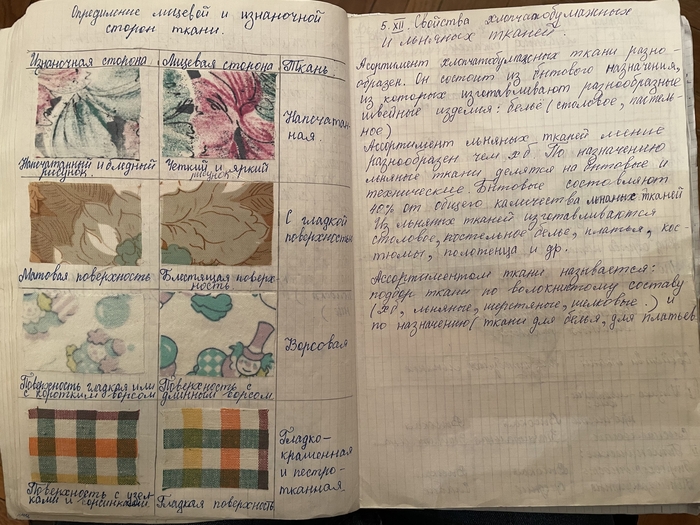 Определение лицевой и изнаночной
сторон ткани.
Изнаночная сторона
Лицевая сторона
Ткань
Напечатан-
ная.
Напечатанный и бледный
рисунок
Четкий и яркий
рисунок
С гладкой
поверхностью
Матовая поверхность
Блестящая поверх-
ность
Ворсовая
Поверхность гладкая или
с коротким ворсом
Поверхность с
длинным ворсом
Гладко-
крашенная
и пестро-
тканная.
Поверхность с узел
ками и ворсинками
Гладкая поверхность
5.XII. Свойства хлопчатобумажных
и льняных тканей.
Ассортимент хлопчатобумажных ткани разно-
образен. Он состоит из бытового назначения,
из которых изготавливают разнообразные
швейные изделия: бельё (столовое, постель-
ное)
Ассортимент льняных тканей менее
разнообразен чем хб. По назначению
льняные ткани делятся на бытовые и
технические. Бытовые составляют
40% от общего количества льняных тканей
Из льняных тканей изготавливаются
столовое, постельное белье, платья, кос-
тюмы, полотенца и др.
Ассортиментом ткани называется:
подбор ткани по волокнистому составу
(хб, льняные, шерстяные, шелковые.) и
по назначению (ткани для белья, для платьев.